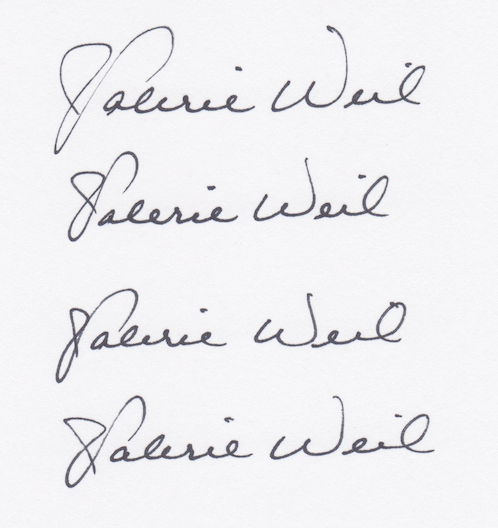 Valerie Weil
Valerie Weil
Valerie Weil
Valerie Weil